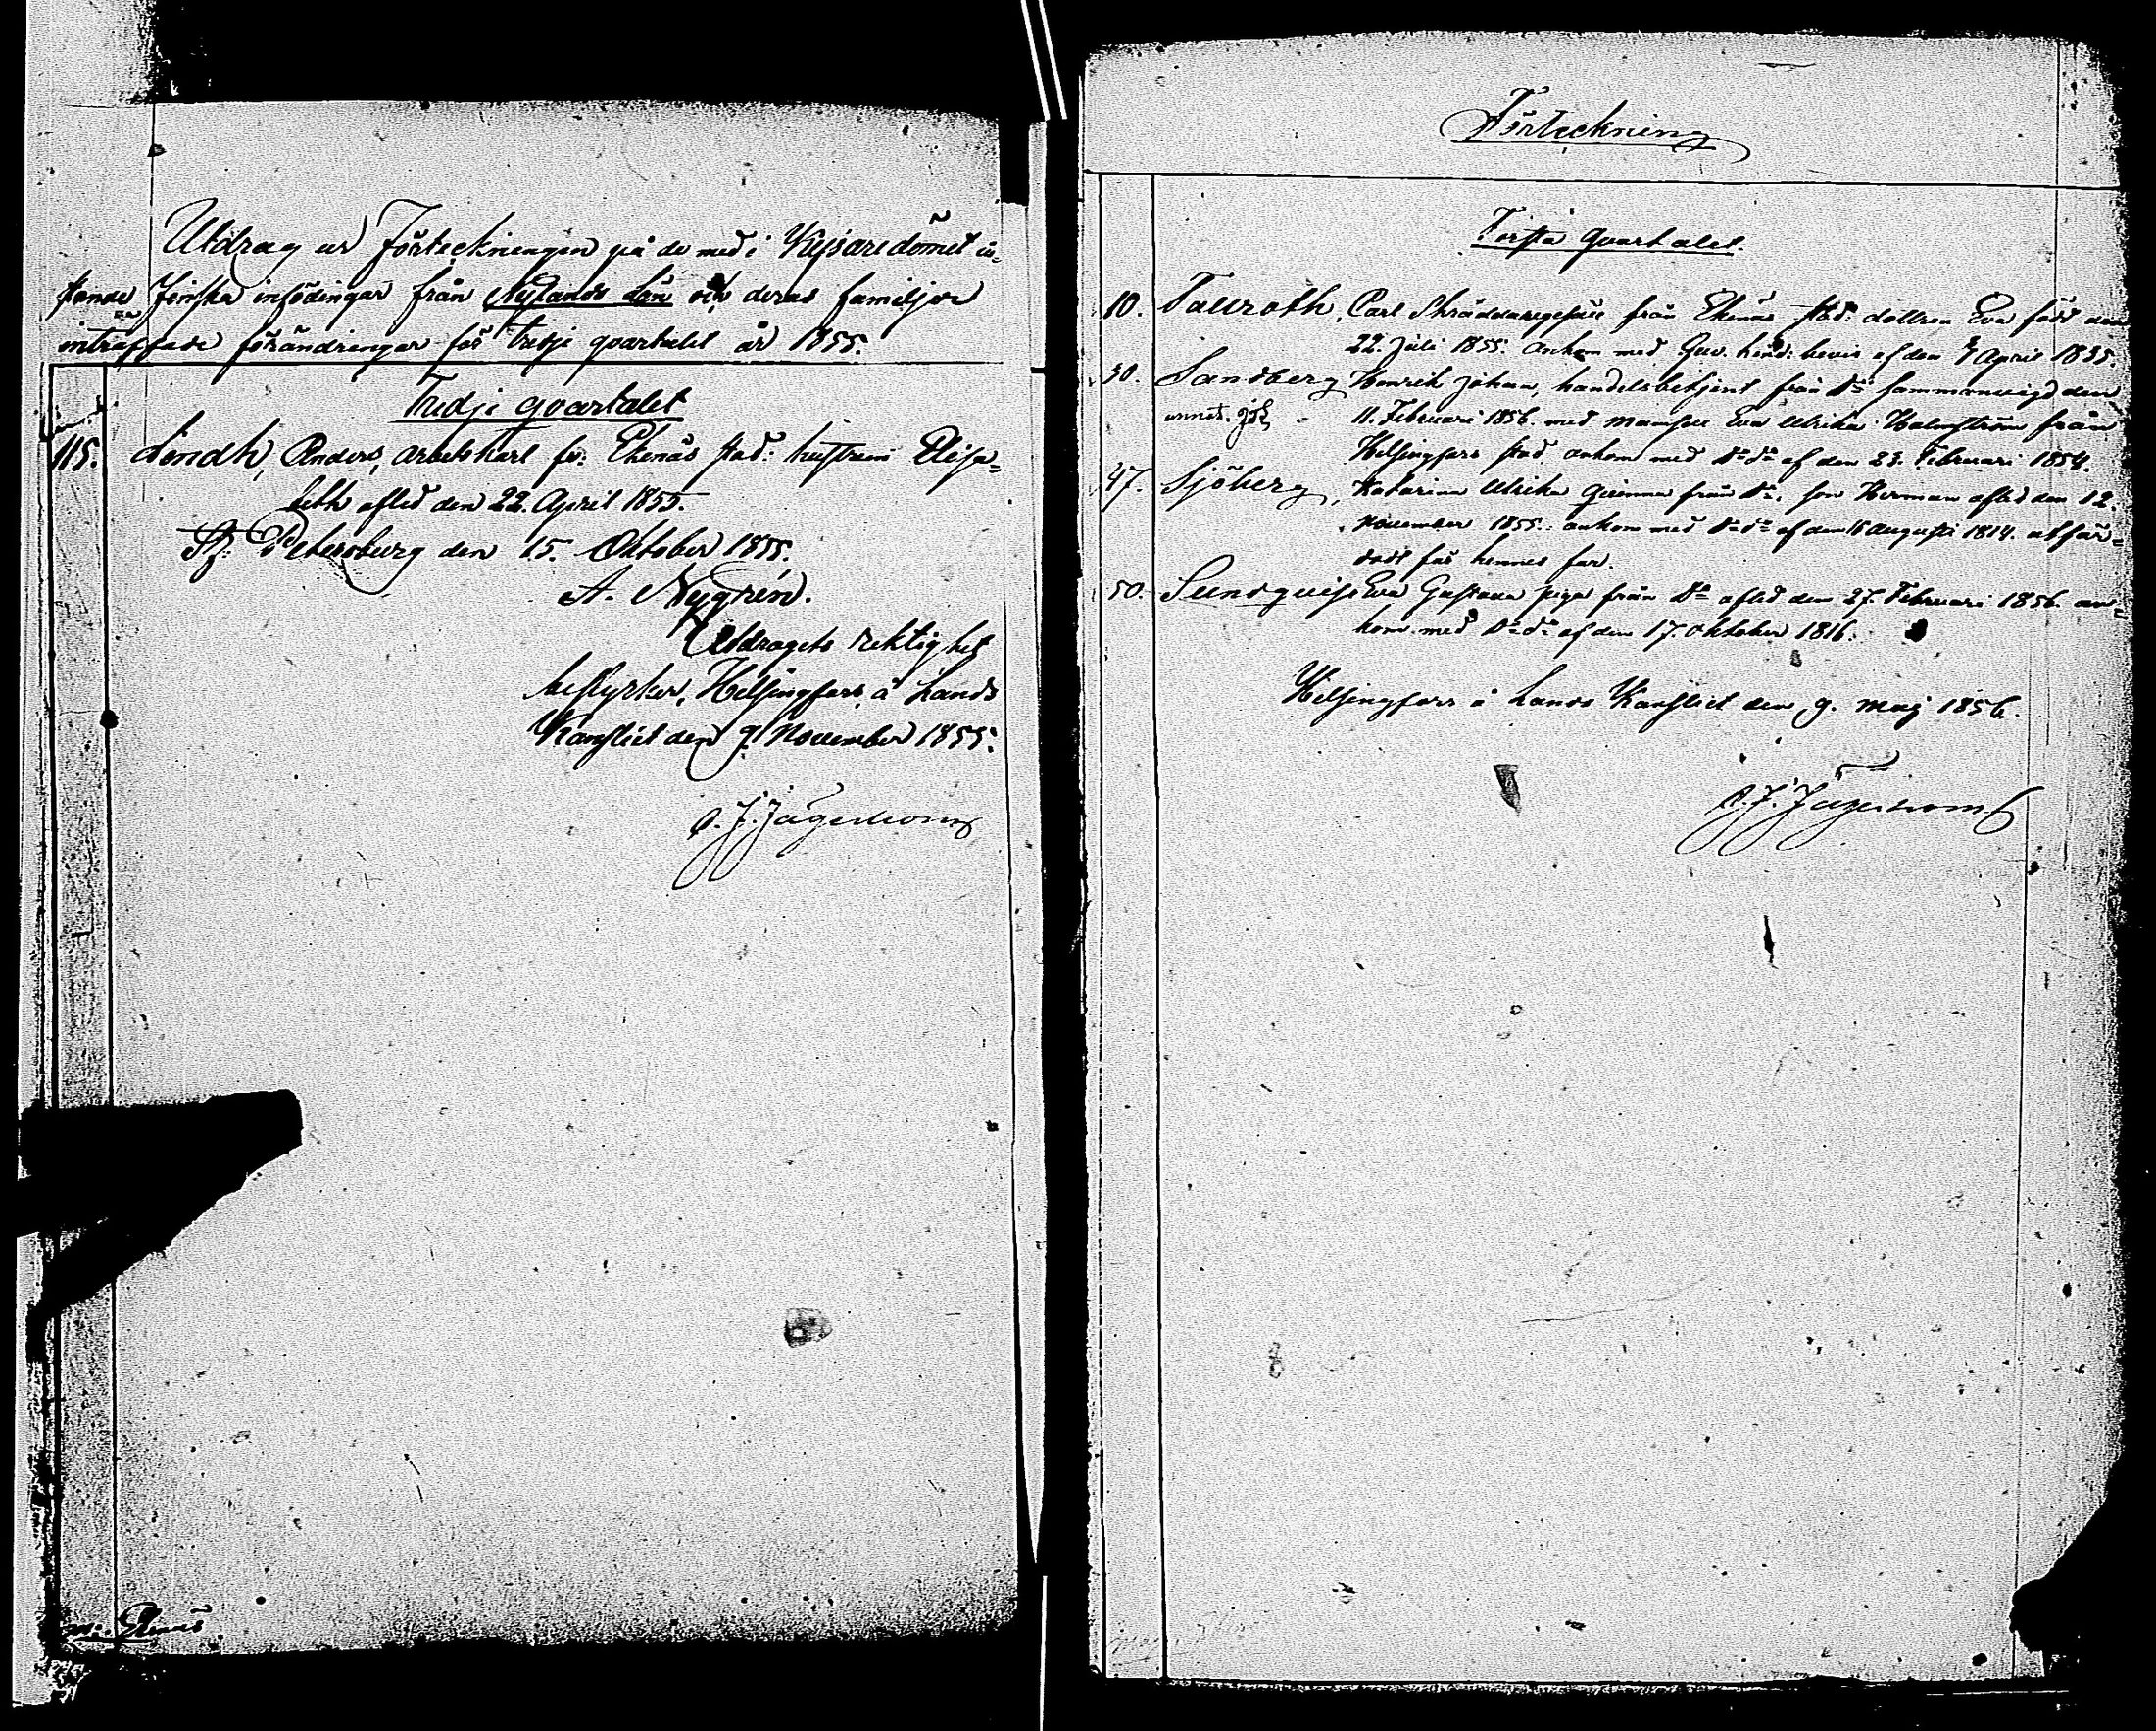 Utdrag ur Förteckningen på de med i Kejsaredömet vi-
stande Finska infödingar från Nylands Län och deras familjer
intraffade förändringar för tredje qvartalet år 1855.
Tredje qvartalet
115. Lindh, Anders, arbetskarl fr: Ekenäs stad: hustrun Elisa-
beth afled den 22. April 1855.
St: Petersburg den 15. Oktober 1855.
A. Nygrén.
Utdragets riktighet
bestyrker, Helsingfors, å Lands
Kansliet den 9 November 1855.
C. J. Jägerhorn
Ekenäs
Förteckning
Första Qvartalet.
10. Tauroth, Carl Skräddaregesäll från Ekenäs stad: dottren Eva född den
22. Juli 1855. ankom med Guv. bevis af den April 1835.
30. Sandberg Henrik Johan, handelsbetjent från D:o sammanvigd den
11. Februari 1856. med mamsell Eva Ulrika Holmström från
Helsingfors stad ankom med D:o d:o af den 23. Februari 1854.
47. Sjöberg, Katarina Ulrika qvinna från D:o, son Herman afled den 12.
November 1855. ankom med D:o d:o af den 16 Augusti 1814. utfär-
dadt för hennes far.
50. Sundqvist Eva Gustava piga från D:o afled den 27. Februari 1856. an-
kom med D:o d:o af den 17. Oktober 1816.
Helsingfors å Lands Kansliet den 9. Maj 1856.
C. J. Jägerhorn